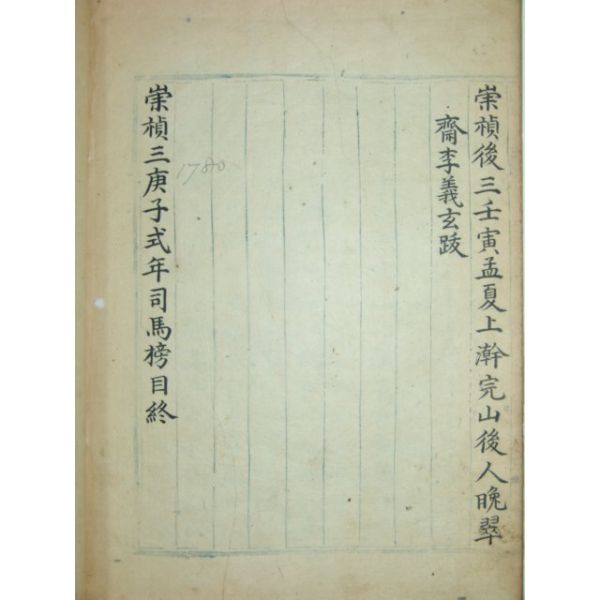 崇禎後三壬寅孟夏上澣完山後人晚翠
齋李義玄跋
1780
崇禎三庚子式年司馬榜目終